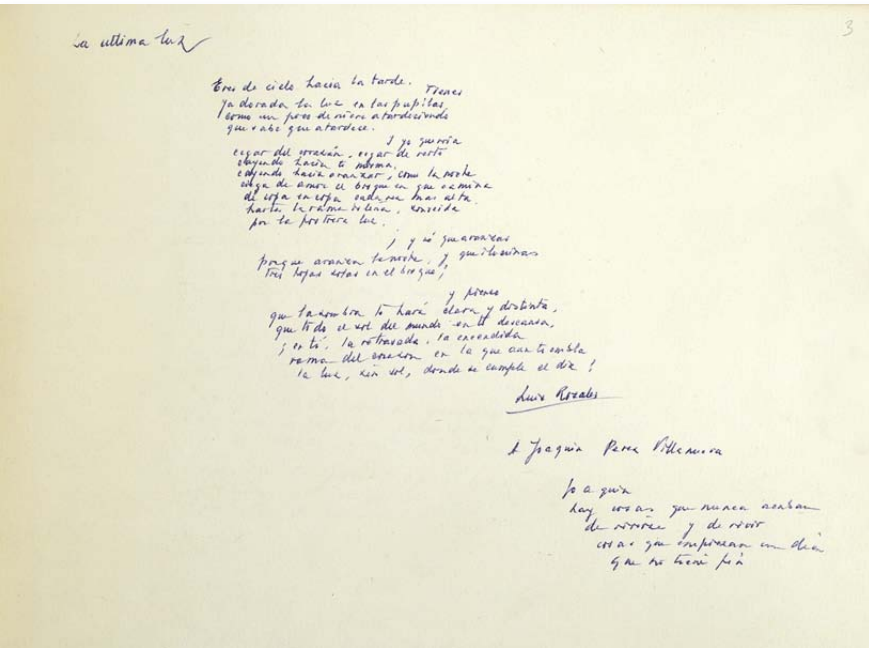 3
La ultima luz
Eres de cielo hacia la tarde. Tienes
ya dorada la luz en las pupilas,
como un poco de nieve atardeciendo
que sabe que atardece.
Y yo querría
cegar del corazón, cegar de verte
cayendo hacia ti misma,
cayendo hacia avanzar, como la noche
ciega de amor el bosque en que camina
de copa en copa cada vez más alta
hasta la rama isleña, sonreída
por la postrera luz.
¡ y sé que avanzas
porque avanza la noche, y que iluminas
tres hojas solas en el bosque!
y pienso
que la sombra te hará clara y distinta,
que todo el sol del mundo en ti descansa,
¡ en ti, la retrasada, la encendida
rama del corazón en la que aun tiembla
la luz, sin sol, donde se cumple el día !
Luis Rosales
A Joaquin Perez Villanueva
Joaquin
hay cosas que nunca acaban
de morirse y de vivir
cosas que empiezan un dia
que no tiene fin